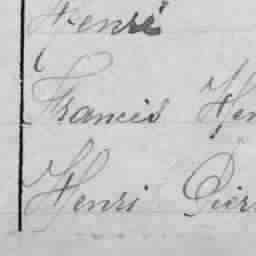 Henri
Francis Hen
Henri Pier